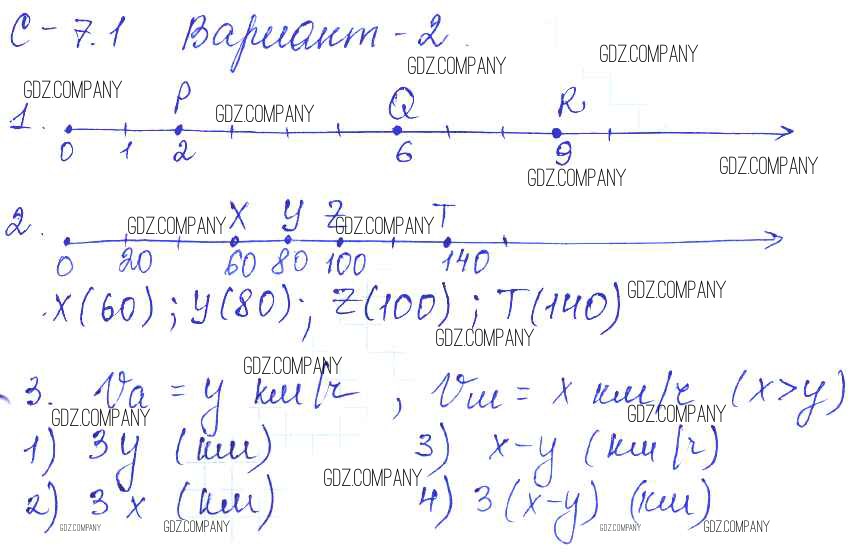 С-7.1 Вариант-2.
GDZ.COMPANY GDZ.COMPANY
GDZ.COMPANY P GDZ.COMPANY Q R
1. 0 1 2 6 9
GDZ.COMPANY GDZ.COMPANY
2. GDZ.COMPANY X Y Z GDZ.COMPANY T
0 20 60 80 100 140
X(60); Y(80); Z(100); T(140) GDZ.COMPANY
GDZ.COMPANY
GDZ.COMPANY
3. Va = y км/ч, Vм = x км/ч (x>y)
GDZ.COMPANY GDZ.COMPANY
1) 3y (км) 3) x-y (км/ч)
GDZ.COMPANY
2) 3x (км) 4) 3(x-y) (км)
GDZ.COMPANY GDZ.COMPANY GDZ.COMPANY GDZ.COMPANY